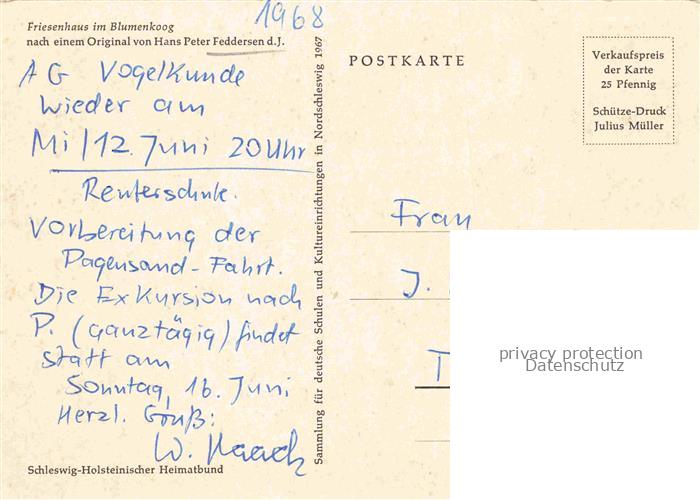 1968
Friesenhaus im Blumenkoog
nach einem Original von Hans Peter Feddersen d.J.
AG Vogelkunde
wieder am
Mi/12. Juni 20 Uhr
Reuterschule.
Vorbereitung der
Pagensand-Fahrt.
Die Exkursion nach
P. (ganztägig) findet
statt am
Sonntag, 16. Juni
Herzl. Gruß:
W. Haack
Schleswig-Holsteinischer Heimatbund
Sammlung für deutsche Schulen und Kultureinrichtungen in Nordschleswig 1967
POSTKARTE
Verkaufspreis
der Karte
25 Pfennig
Schütze-Druck
Julius Müller
Frau
J.
privacy protection
Datenschutz